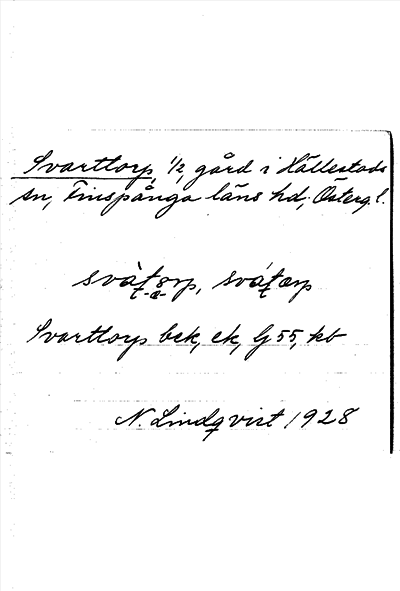 Svarttorp, 1/2, gård i Hällestads
sn, Finspånga läns hd, Österg. l.
svàtorp, svátœrp
Svarttorp bek, ek, G 55, kb
N. Lindqvist 1928